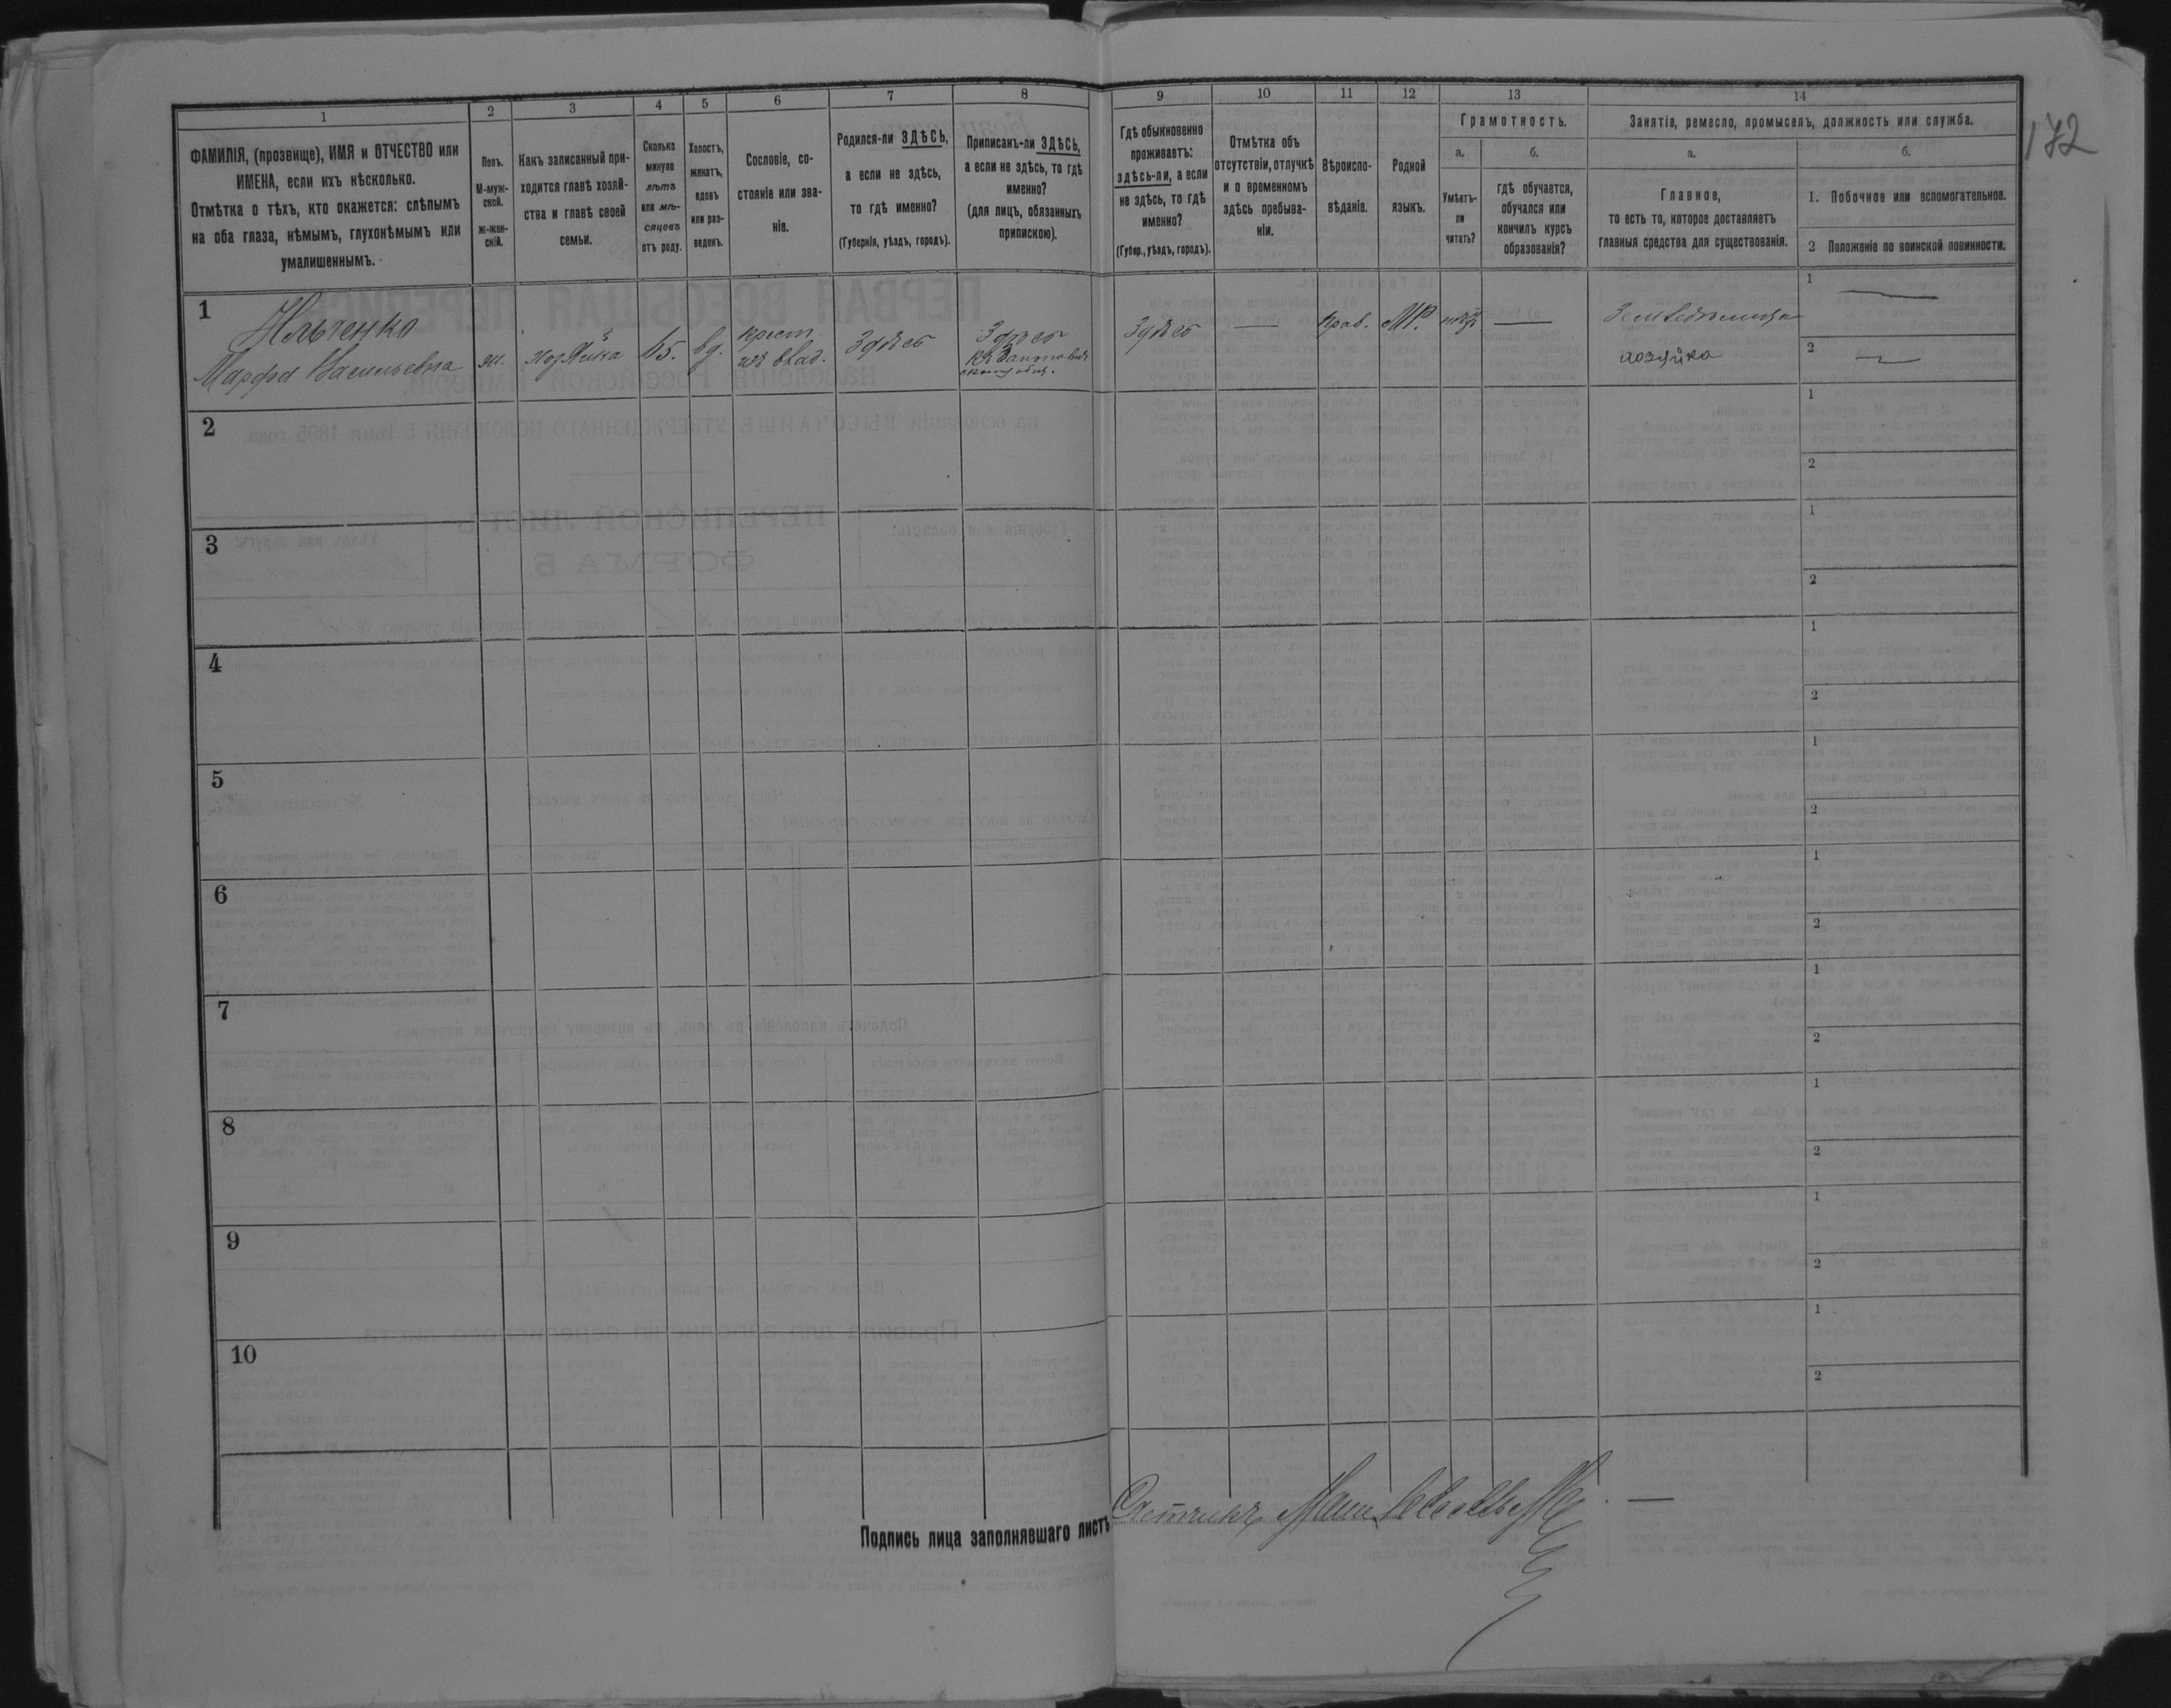 1
2
3
4
5
6
7
8
ФАМИЛІЯ, (прозвище), ИМЯ и ОТЧЕСТВО или
ИМЕНА, если ихъ нѣсколько.
Отмѣтка о тѣхъ, кто окажется: слѣпымъ
на оба глаза, нѣмымъ, глухонѣмымъ или
умалишеннымъ.
Полъ.
М-муж-
ской.
ж-жен-
скій.
Какъ записанный при-
ходится главѣ хозяй-
ства и главѣ своей
семьи.
Сколько
минуло
лѣтъ
или мѣ-
сяцевъ
отъ роду.
Холостъ,
женатъ,
вдовъ
или раз-
веденъ.
Сословіе, со-
стояніе или зва-
ніе.
Родился-ли ЗДѢСЬ,
а если не здѣсь,
то гдѣ именно?
(Губернія, уѣздъ, городъ).
Приписанъ-ли ЗДѢСЬ,
а если не здѣсь, то гдѣ
именно?
(для лицъ, обязанныхъ
припискою).
9
10
11
12
13
14
172
Гдѣ обыкновенно
проживаетъ:
здѣсь-ли, а если
не здѣсь, то гдѣ
именно?
(Губер., уѣздъ, городъ).
Отмѣтка объ
отсутствіи, отлучкѣ
и о временномъ
здѣсь пребыва-
ніи.
Вѣроиспо-
вѣданіе.
Родной
языкъ.
Грамотность.
а.
Умѣетъ-
ли
читать?
б.
гдѣ обучается,
обучался или
кончилъ курсъ
образованія?
Занятія, ремесло, промыселъ, должность или служба.
а.
Главное,
то есть то, которое доставляетъ
главныя средства для существованія.
б.
1. Побочное или вспомогательное.
2 Положеніе по воинской повинности.
1
Марфа Васильевна
ж.
хозяйка
45.
вд.
крест.
изъ влад.
Здѣсь
Здѣсь
Здѣсь
—
Прав.
МР.
нѣтъ
—
хозяйка
1 —
2 —
2
1
2
3
1
2
4
1
2
5
1
2
6
1
2
7
1
2
8
1
2
9
1
2
10
1
2
Подпись лица заполнявшаго листъ